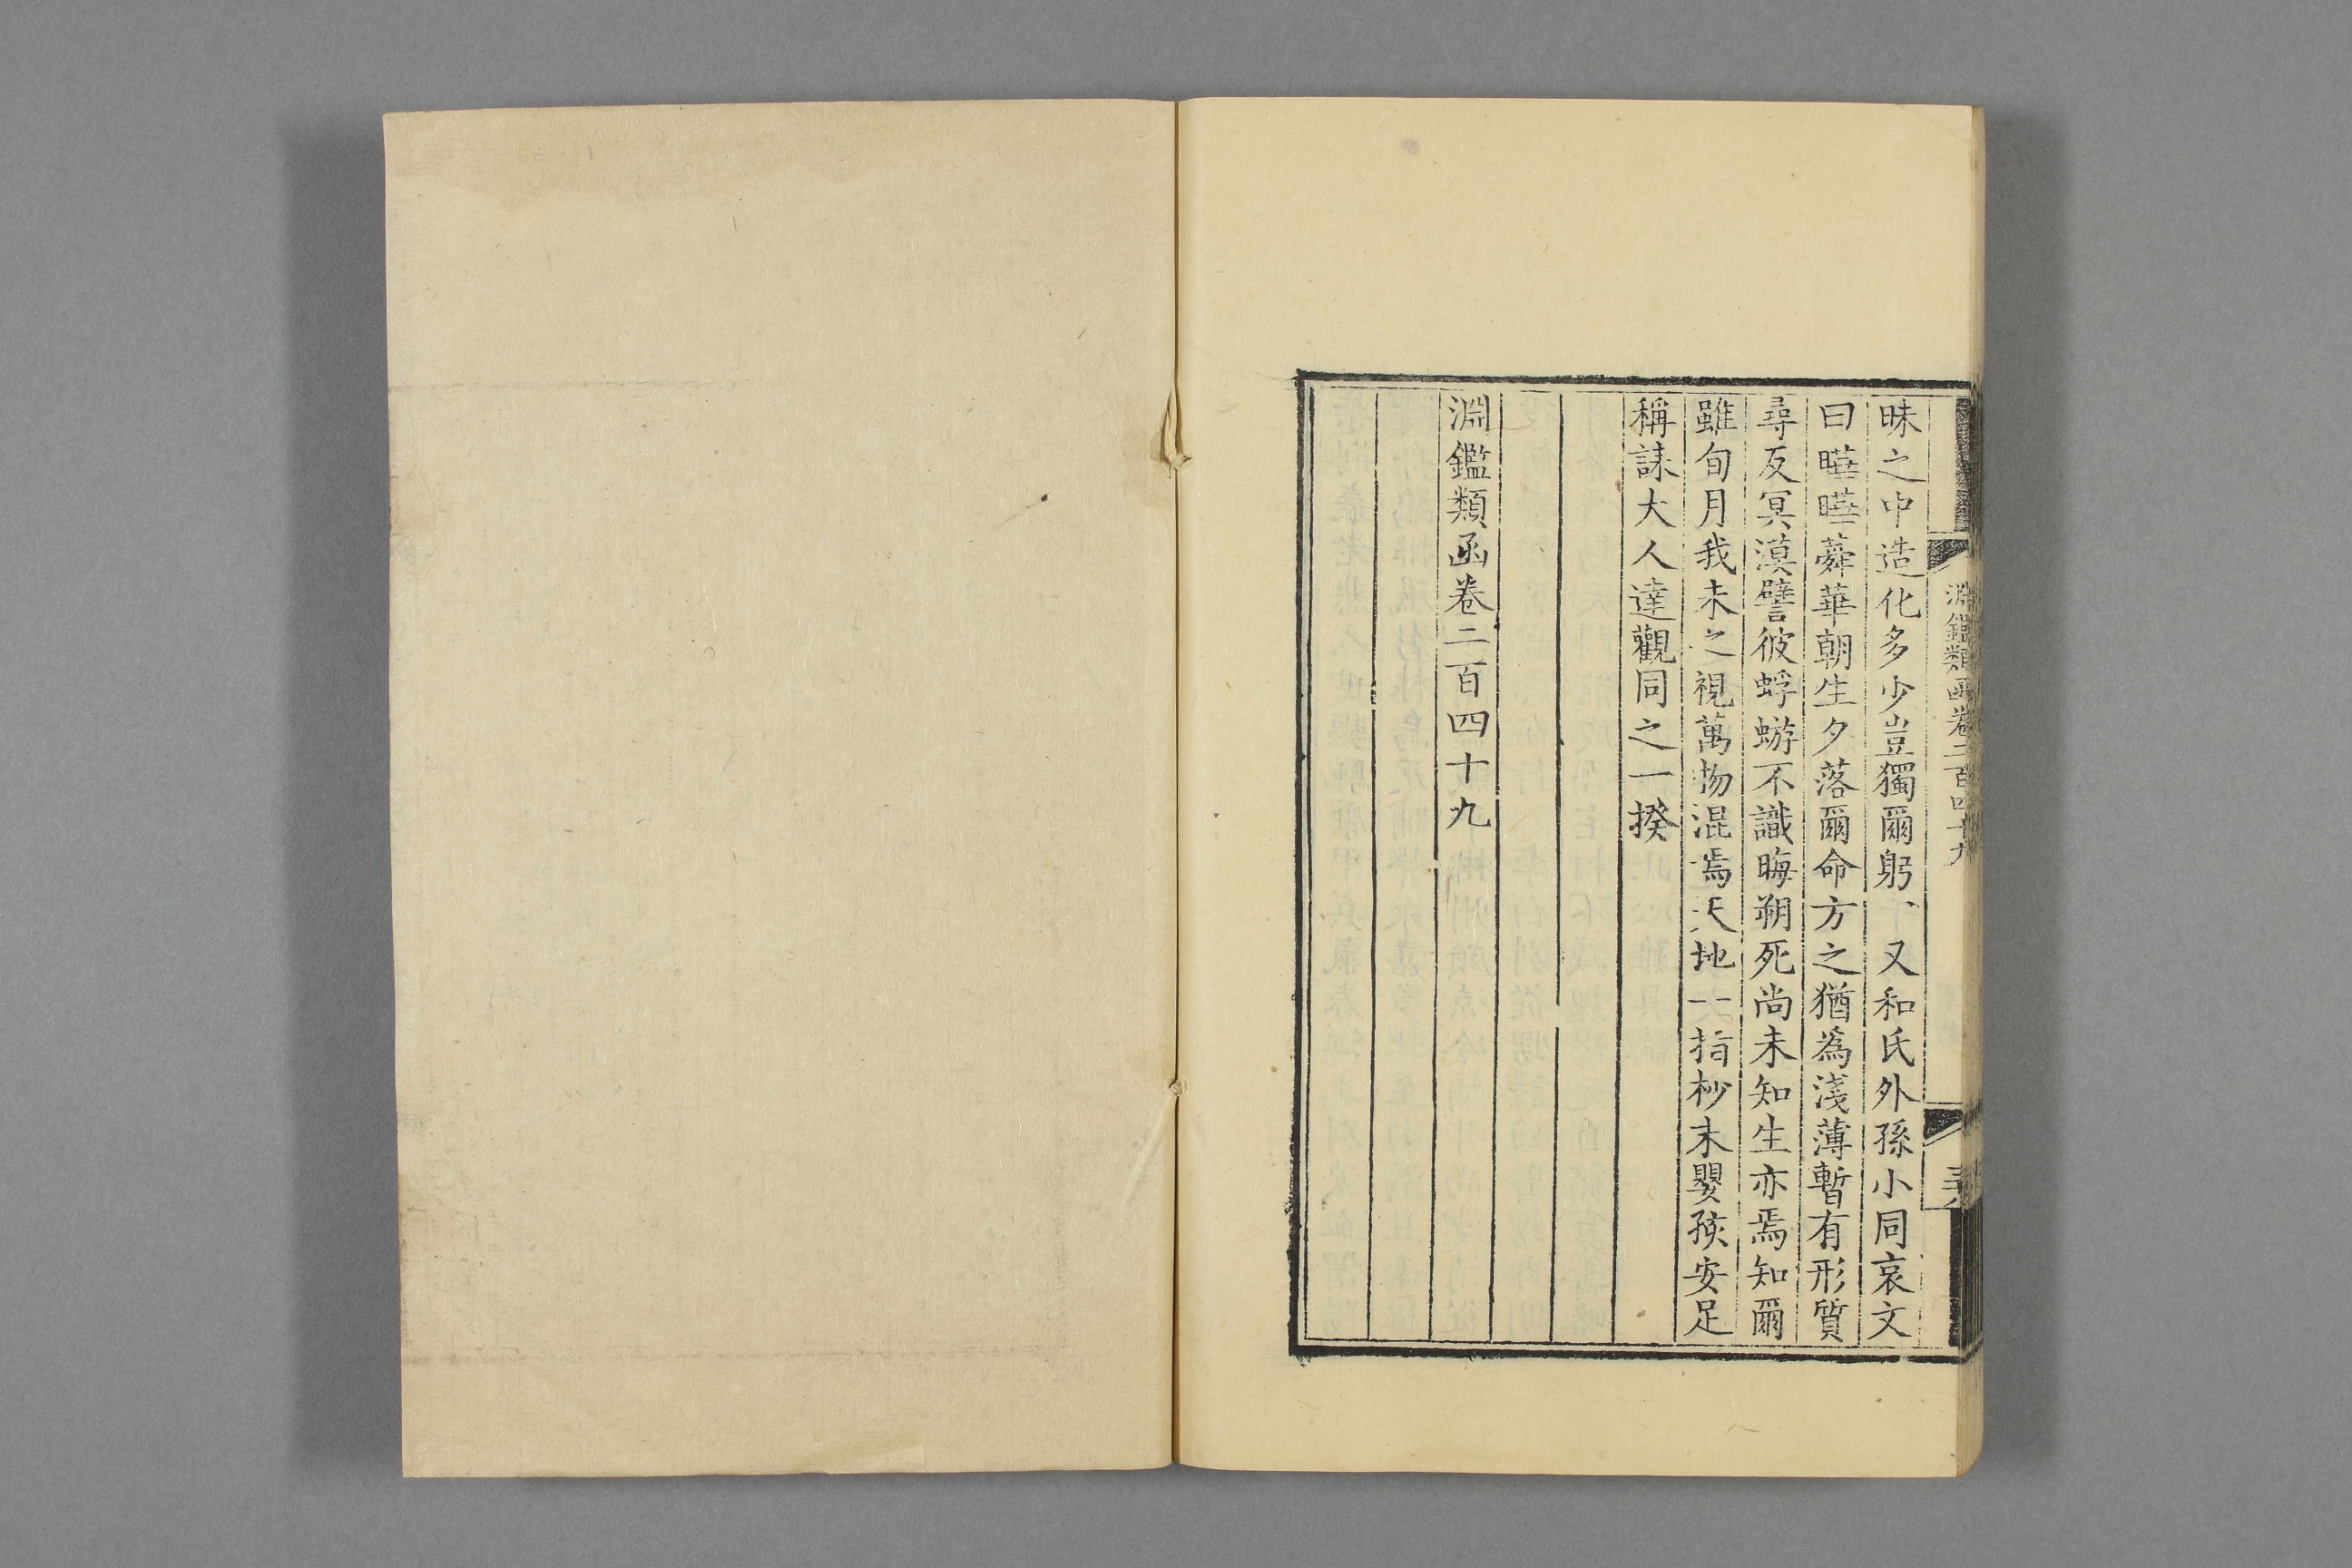 昧之中造化多少豈獨爾躬、又和氏外孫小同哀文
曰曄曄蕣華朝生夕落爾命方之猶為淺薄暫有形質
尋反冥漠譬彼蜉蝣不識晦朔死尚未知生亦焉知爾
雖旬月我未之視萬物混焉天地一指杪末嬰孩安足
稱誄大人達觀同之一揆
淵鑑類函卷二百四十九
淵鑑類函卷二百四十九